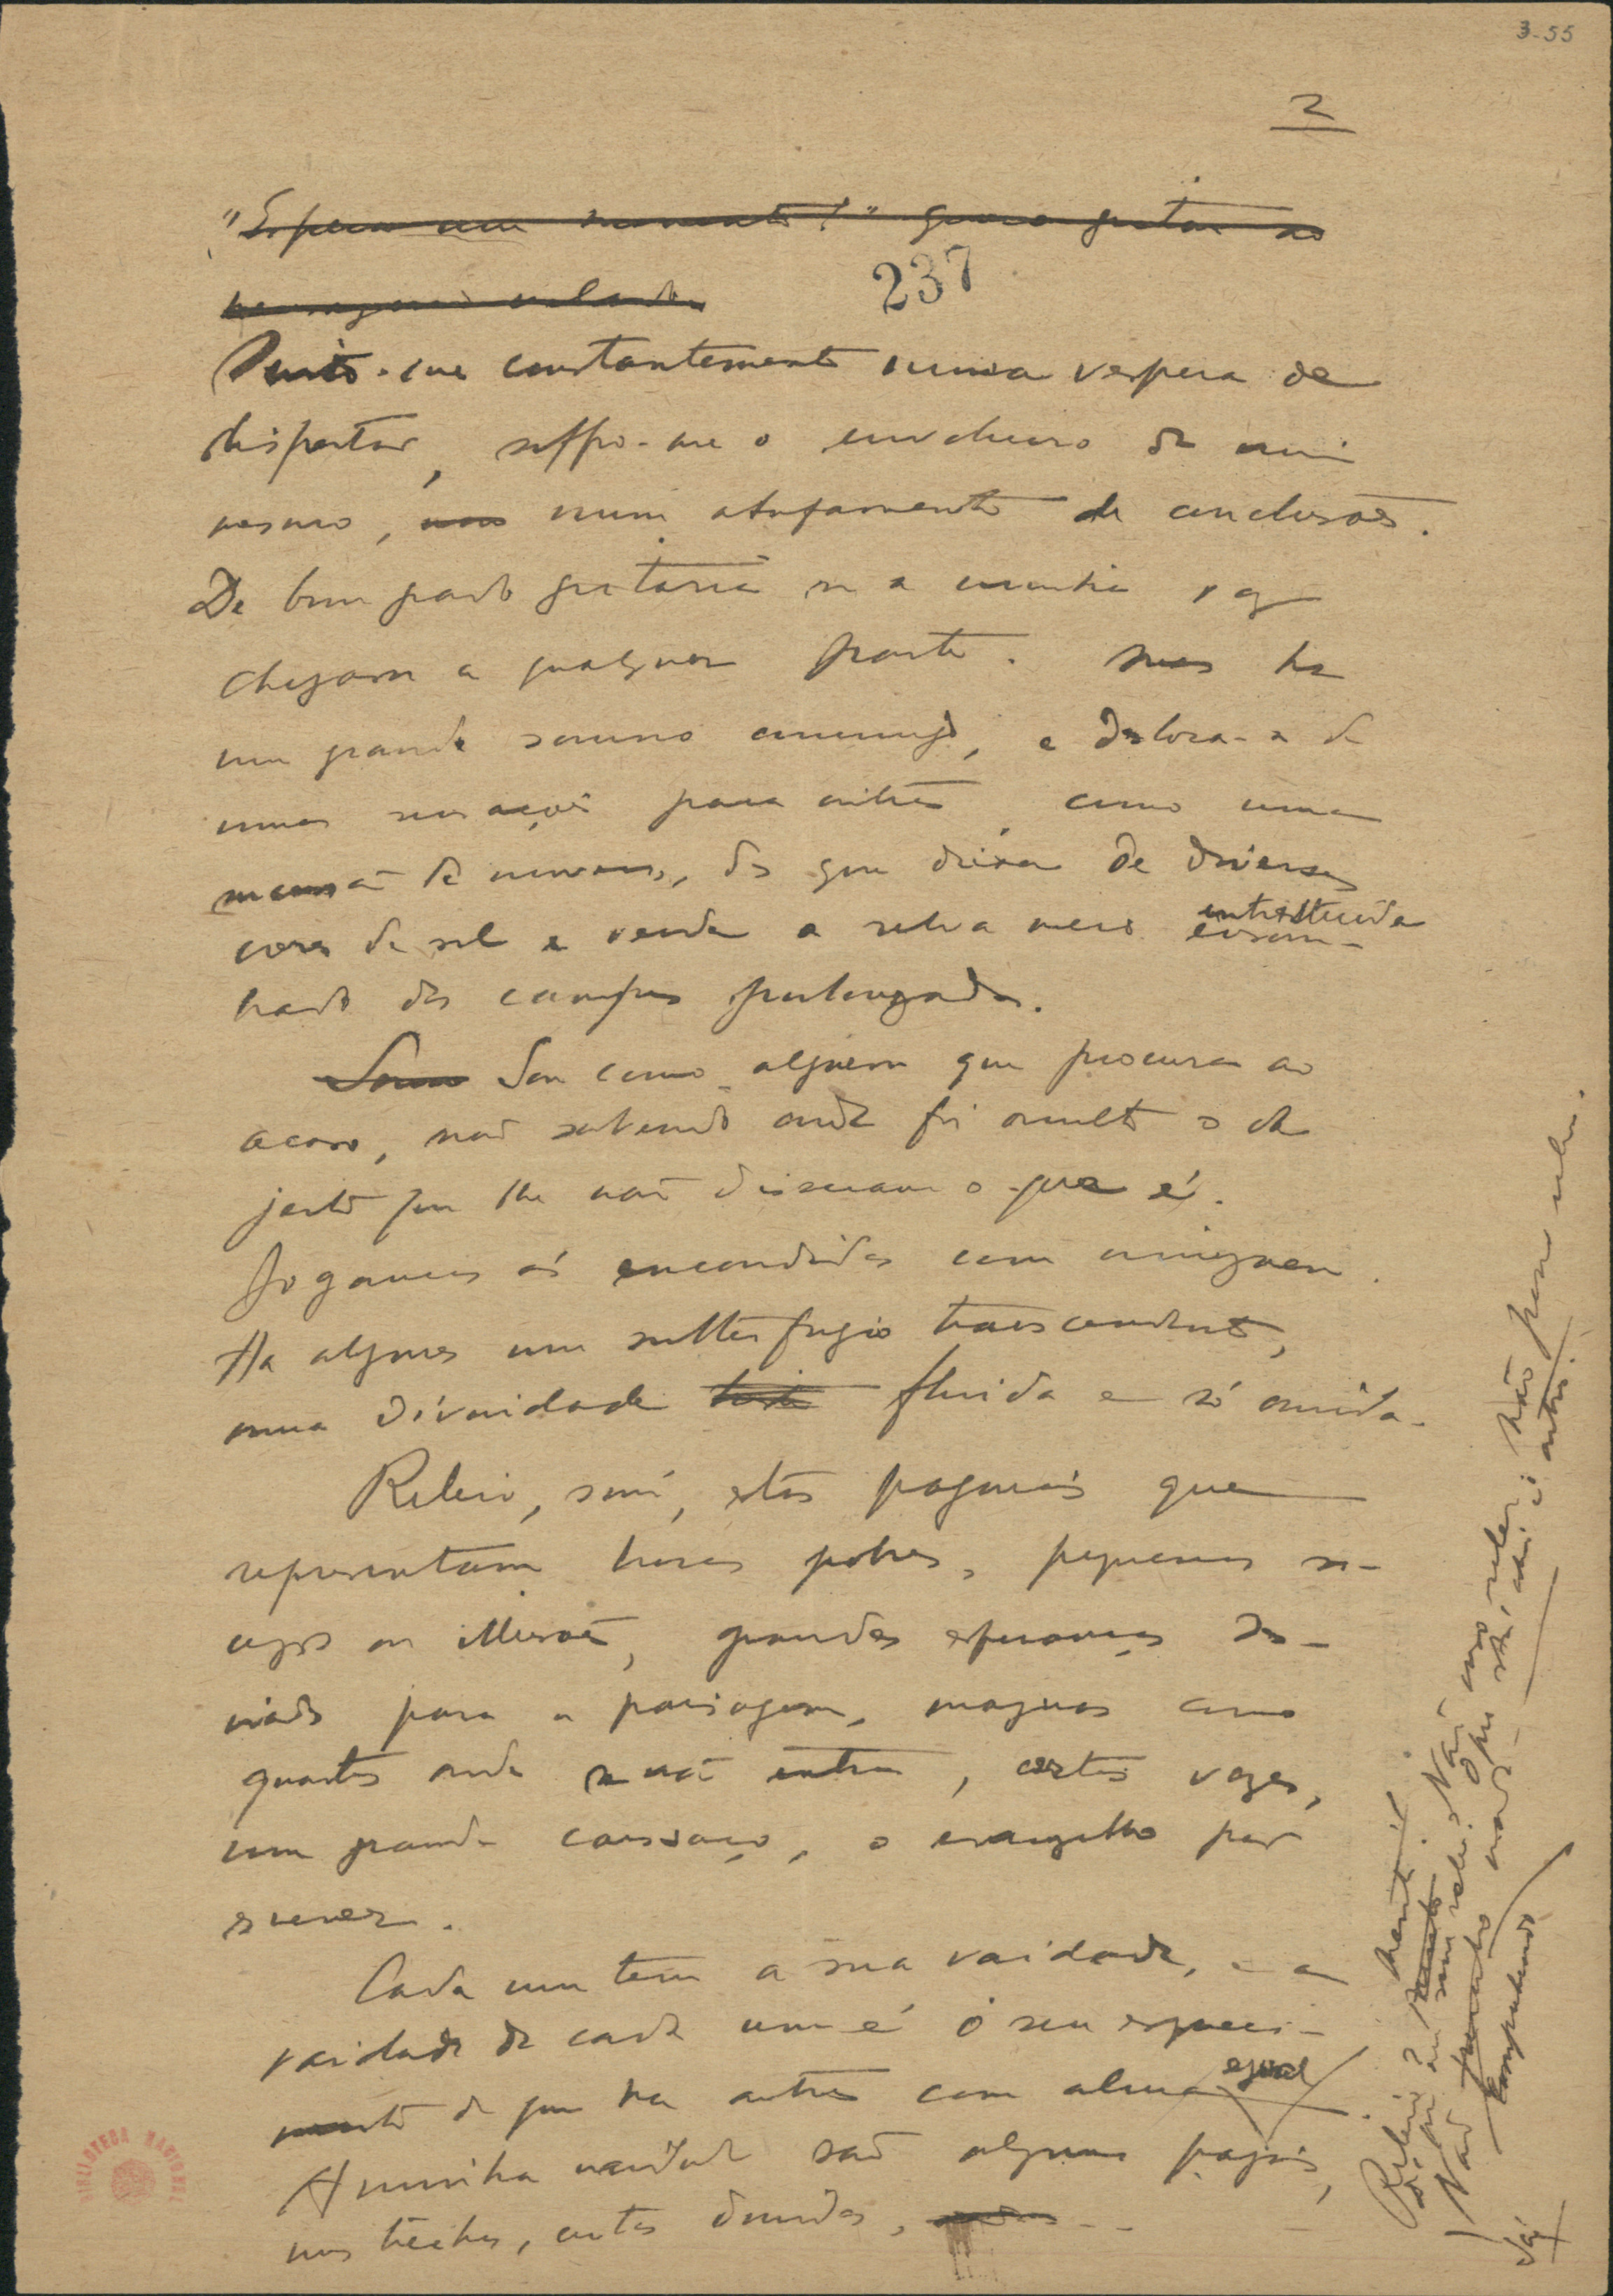 3-55
2
"Espera um momento!" quero gritar ao
237
Sinto-me constantemente numa vespera de
dispertar, soffro-me o involucro de mim
mesmo, num abafamento de conclusões.
De bom grado gritaria se a minha voz
chegasse a qualquer parte. Mas ha
um grande somno commigo, e desloca-se de
umas sensações para outras como uma
de nuvens, das que deixa de diversas
cores de sol e verde a relva meio entristecida
brada dos campos prolongados.
Sou como alguem que procura ao
acaso, não sabendo onde foi occulto o ob
jecto que lhe não disseram o que é.
Jogamos ás escondidas com ninguem.
Ha algures um subterfugio transcendente,
uma divindade fluida e só ouvida.
Releio, sim, estas paginas que
representam horas pobres, pequenos so-
cegos ou illusões, grandes esperanças des-
viadas para a paisagem, maguas como
quartos onde se não entra, certas vozes,
um grande cansaço, o evangelho por
escrever.
Cada um tem a sua vaidade, e a
vaidade de cada um é o seu esqueci-
mento de que ha outros com alma egual.
A minha vaidade são algumas paginas,
uns trechos, certas duvidas,
Releio? Menti!
Não ouso reler. Não posso reler.
De que me serve reler? O que está ali é outro.
Já não comprehendo nada
BIBLIOTECA NACIONAL